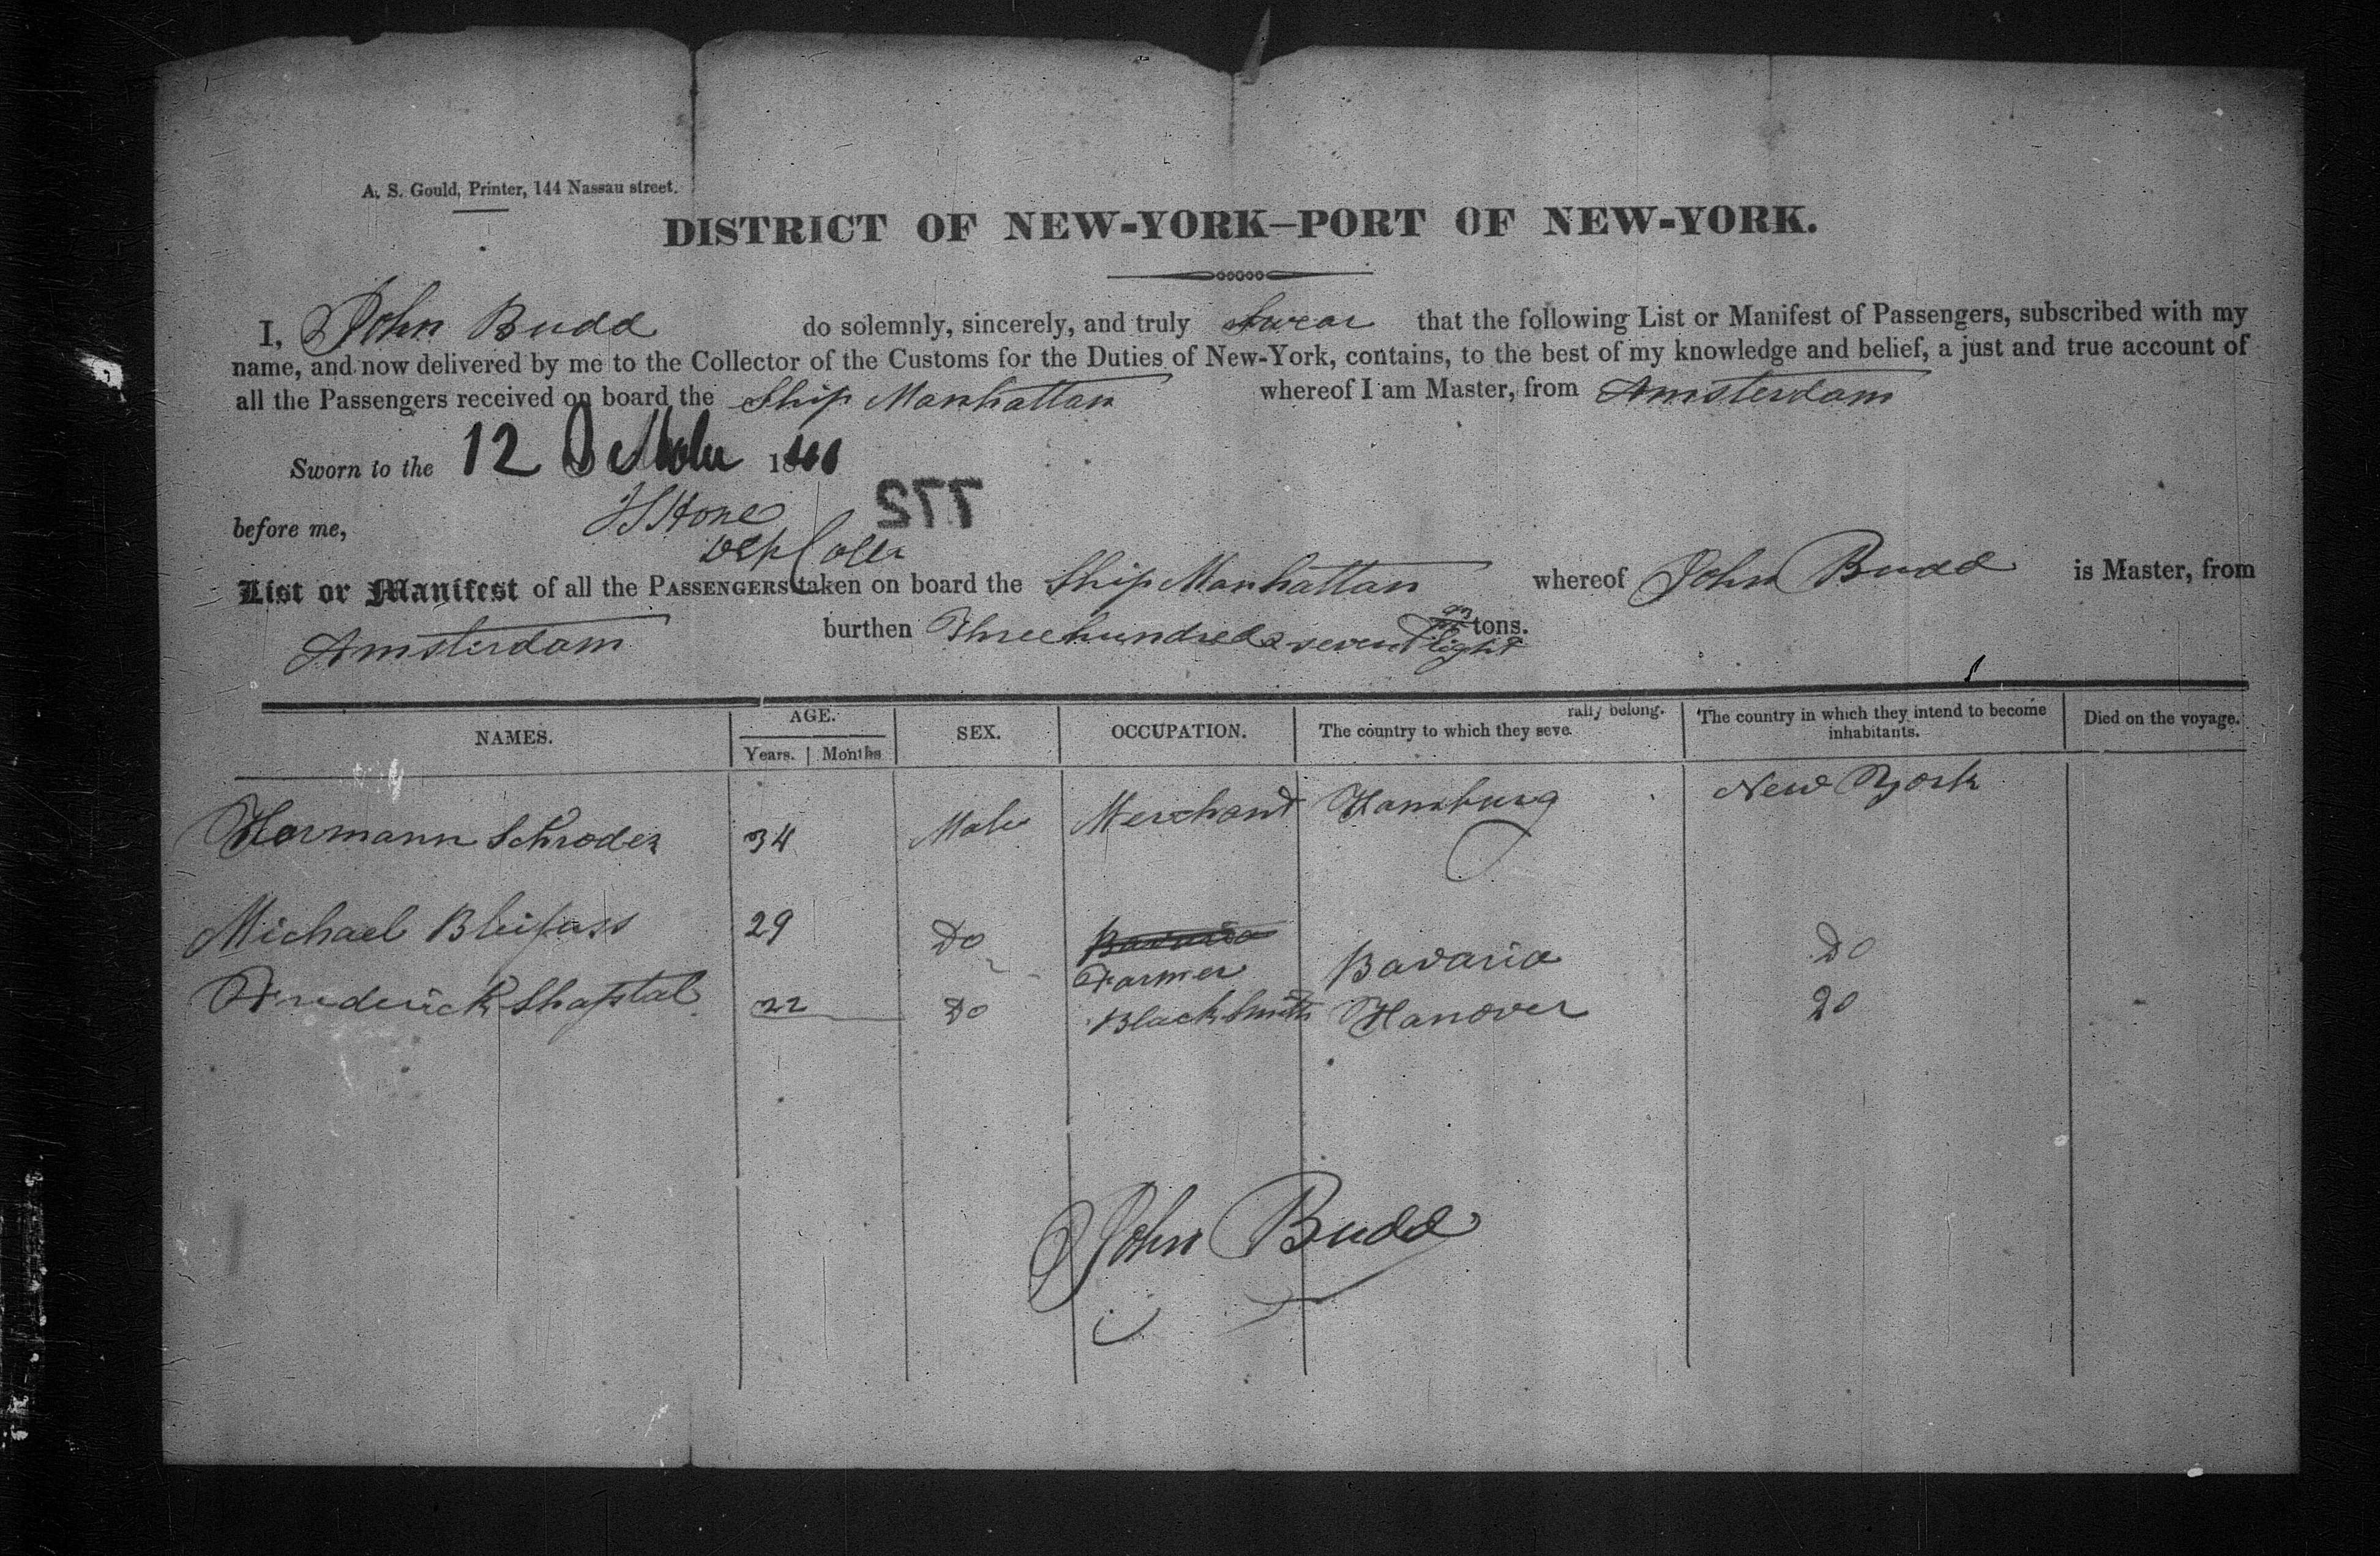 A. S. Gould, Printer, 144 Nassau street.
DISTRICT OF NEW-YORK—PORT OF NEW-YORK.
I, John Budd do solemnly, sincerely, and truly swear that the following List or Manifest of Passengers, subscribed with my
name, and now delivered by me to the Collector of the Customs for the Duties of New-York, contains, to the best of my knowledge and belief, a just and true account of
all the Passengers received on board the Ship Manhattan whereof I am Master, from Amsterdam
Sworn to the 12 October 18
772
before me,
Dep Coller
List or Manifest of all the PASSENGERS taken on board the Ship Manhattan whereof John Budd is Master, from
Amsterdam burthen Three hundred & seventy eight tons.
NAMES. AGE. Years. Months SEX. OCCUPATION. The country to which they seve rally belong. The country in which they intend to become inhabitants. Died on the voyage.
Hermann Schroder 34 Male Merchant Hamburg New York
Michael Bleifuss 29 Do Bavaria Farmer Bavaria Do
Frederick Shaptal 22 Do Blacksmith Hanover Do
John Budd